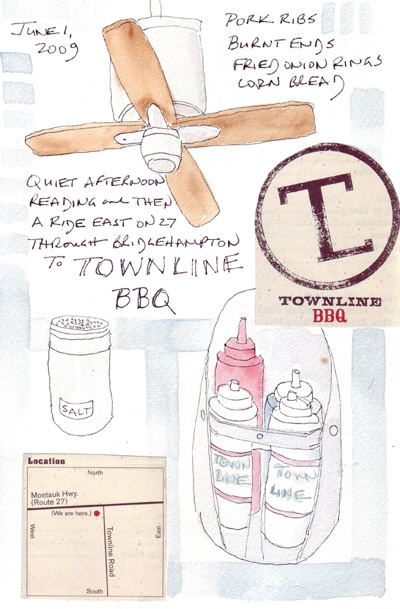 JUNE 1,
2009
PORK RIBS
BURNT ENDS
FRIED ONION RINGS
CORN BREAD
QUIET AFTERNOON
READING and THEN
A RIDE EAST ON 27
THROUGH BRIDGEHAMPTON
TO TOWNLINE
BBQ
TL
TOWNLINE
BBQ
SALT
TOWN
LINE
TOWN
LINE
Location
North
Montauk Hwy.
(Route 27)
(We are here.)
West
Townline Road
East
South